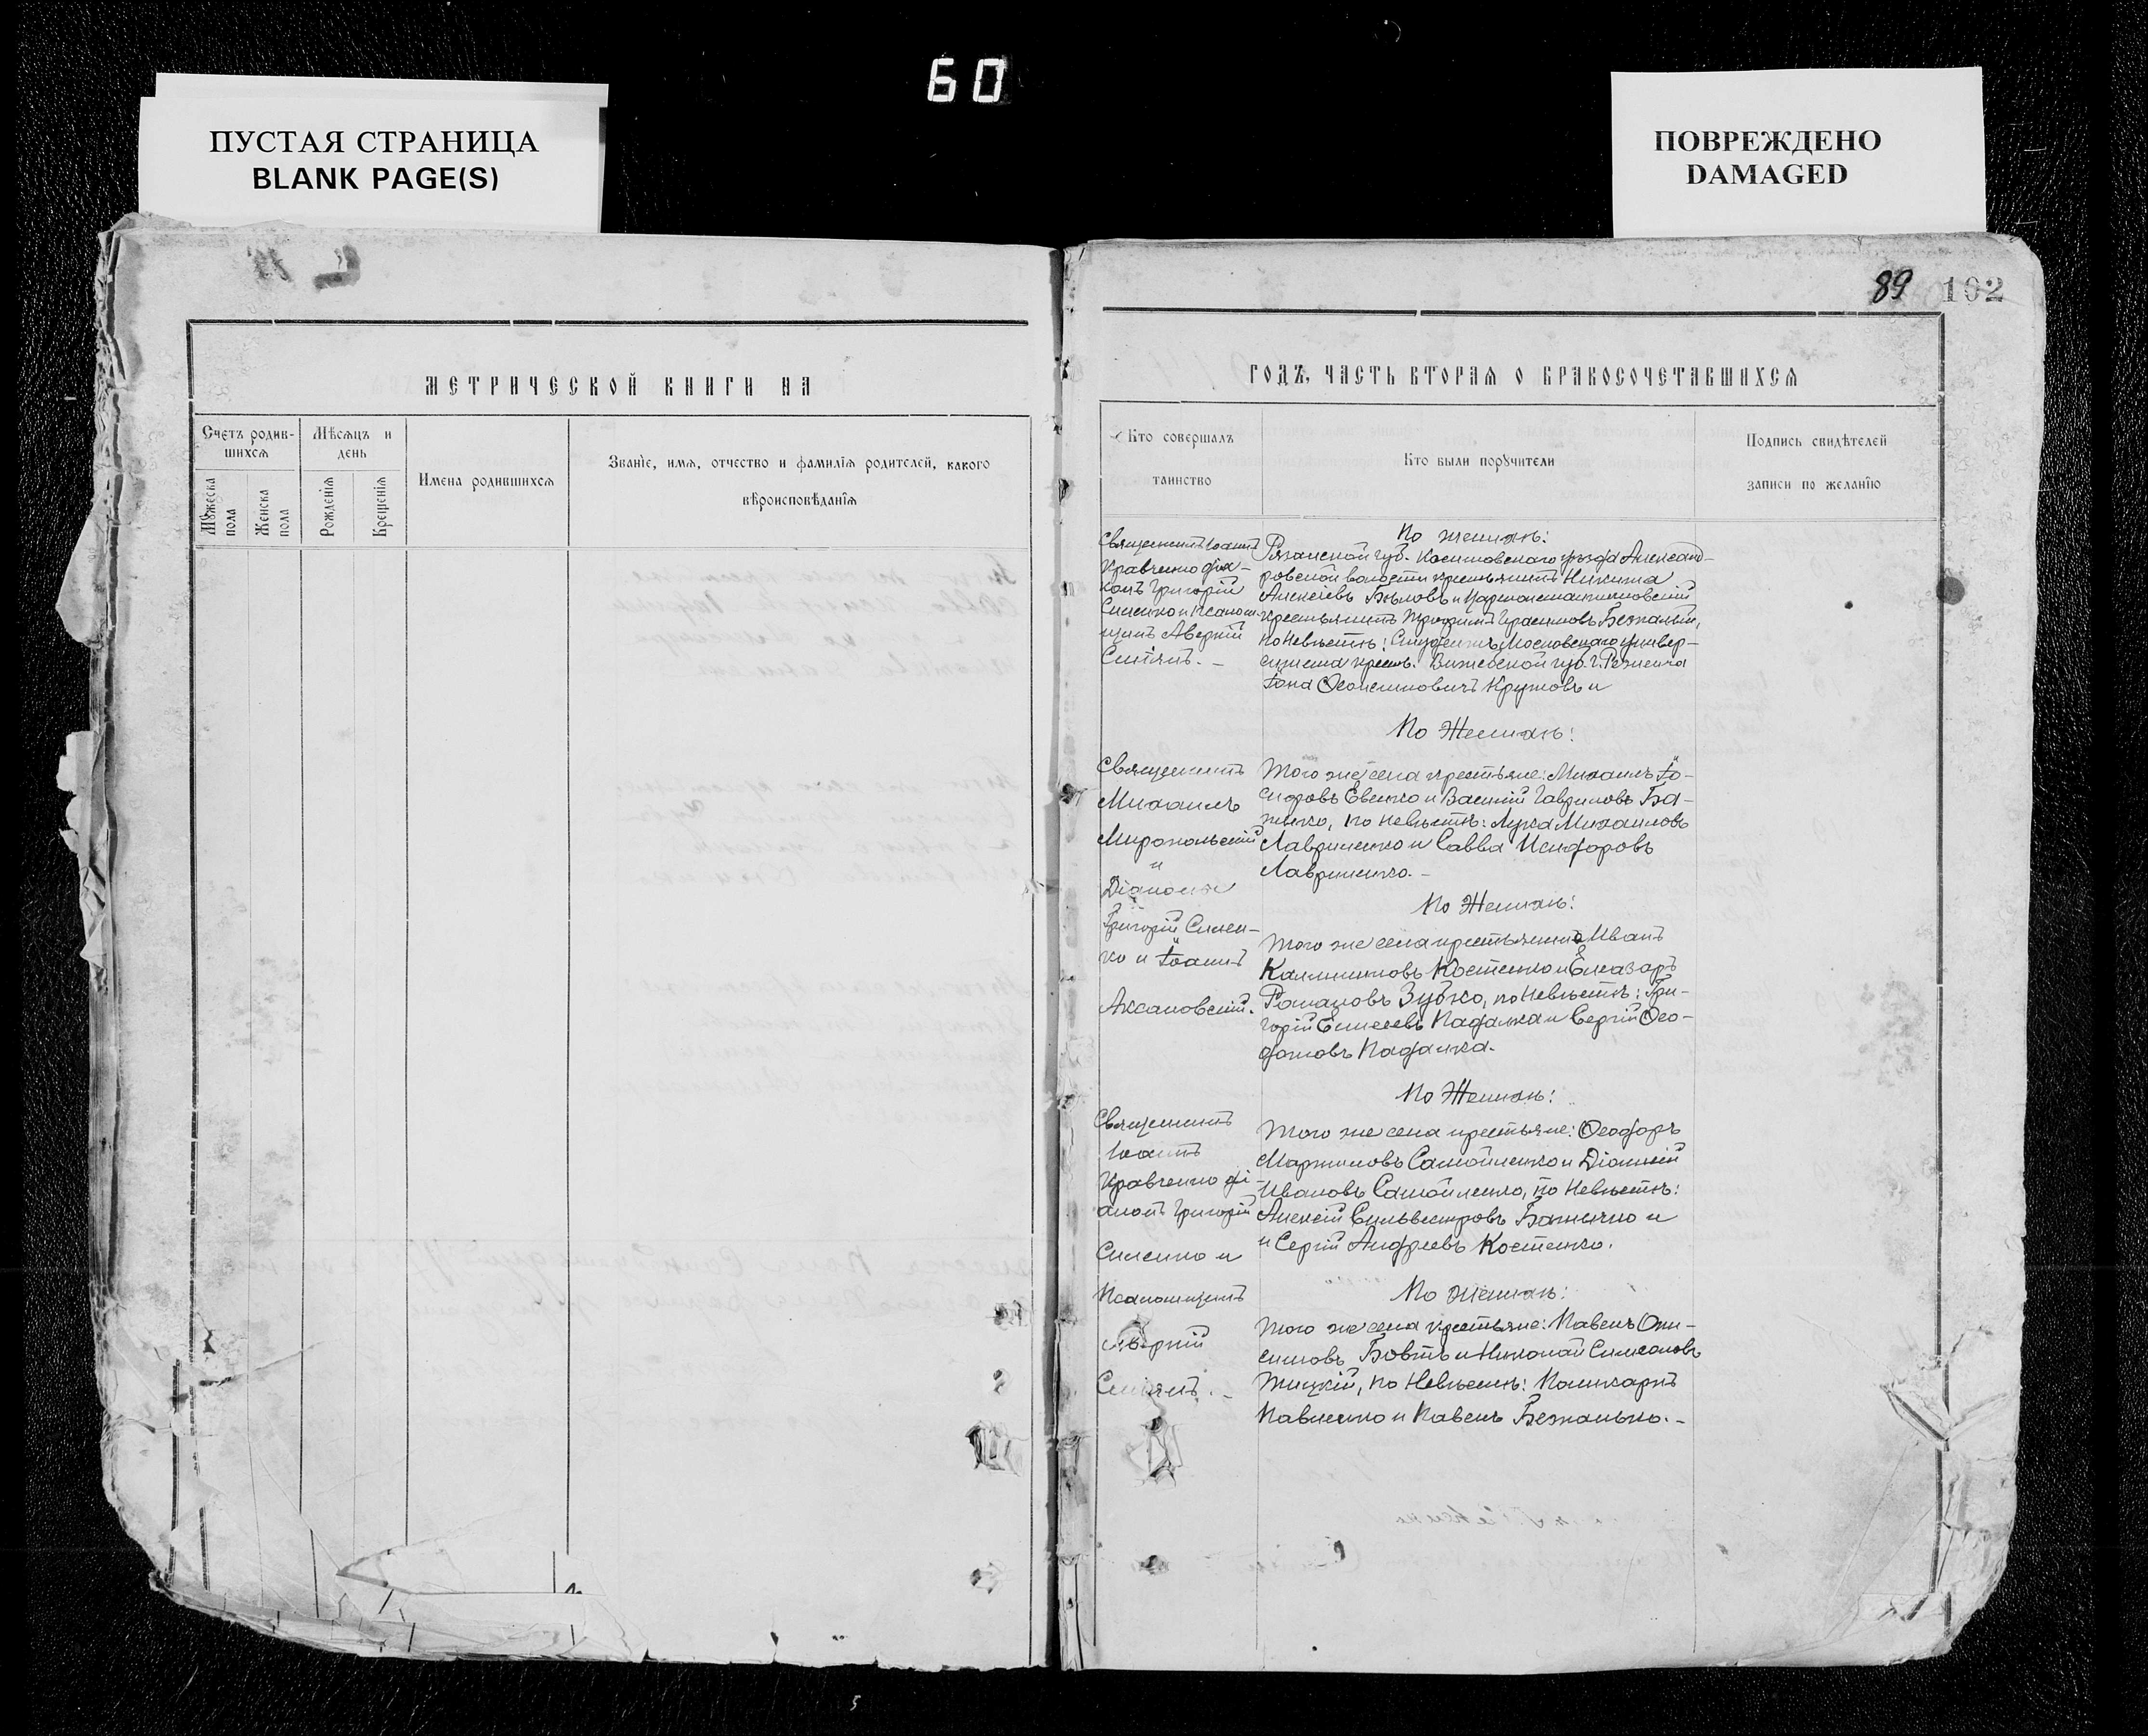 60
ПУСТАЯ СТРАНИЦА
BLANK PAGE(S)
ПОВРЕЖДЕНО
DAMAGED
89 102
МЕТРИЧЕСКОЙ КНИГИ НА
Счетъ родив-
шихся
Мѣсяцъ и
день
Мꙋжеска
пола
Женска
пола
Рожденія
Крещенія
Имена родившихся
Званіе, имя, отчество и фамилія родителей, какого
вѣроисповѣданія
ГОДЪ, ЧАСТЬ ВТОРАЯ О БРАКОСОЧЕТАВШИХСЯ
Кто совершалъ
таинство
Кто были порꙋчители
Подпись свидѣтелей
записи по желанію
Священникъ Іоаннъ
Кравченко діа-
конъ Григорій
Силенко и Псалом-
щикъ Аверкій
По женихѣ:
Рязанской губ. Касимовскаго уѣзда Александ-
ровской волости крестьянинъ Никита
Алексѣевъ Бѣловъ и
крестьянинъ Трофимъ Герасимовъ
по невѣстѣ: Студентъ Московскаго универ-
ситета крест. Витебской губ. г. Рѣжица
Іона
Священникъ
Михаилъ
Миропольскій
и
Діаконы
Григорій Силен-
ко и Іоаннъ
Аксановскій.
По Женихѣ:
Того же села крестьяне: Михаилъ Іо-
сифовъ Евенко и Василій Гавриловъ Ба-
женко, по невѣстѣ: Лука Михаиловъ
Лавриненко и Савва Исидоровъ
Лавриненко. -
По Женихѣ:
Того же села крестьяне Иванъ
Каллиниковъ Костенко и Елеазаръ
Романовъ Зубко, по невѣстѣ: Гри-
горій Елисеевъ Падалка и Сергій Ѳео-
дотовъ Падалка.
Священникъ
Іоаннъ
Кравченко ді-
аконъ Григорій
Силенко и
Псаломщикъ
Аверкій
По Женихѣ:
Того же села крестьяне: Ѳеодоръ
Мартиновъ Самойленко и Діонисій
Ивановъ Самойленко, по невѣстѣ:
Алексій Сильвестровъ Баженко и
и Сергій Андреевъ Костенко.
По женихѣ:
Того же села крестьяне: Павелъ Они-
симовъ Бовтъ и Николай Симеоновъ
по невѣстѣ: Поликарпъ
Павленко и Павелъ